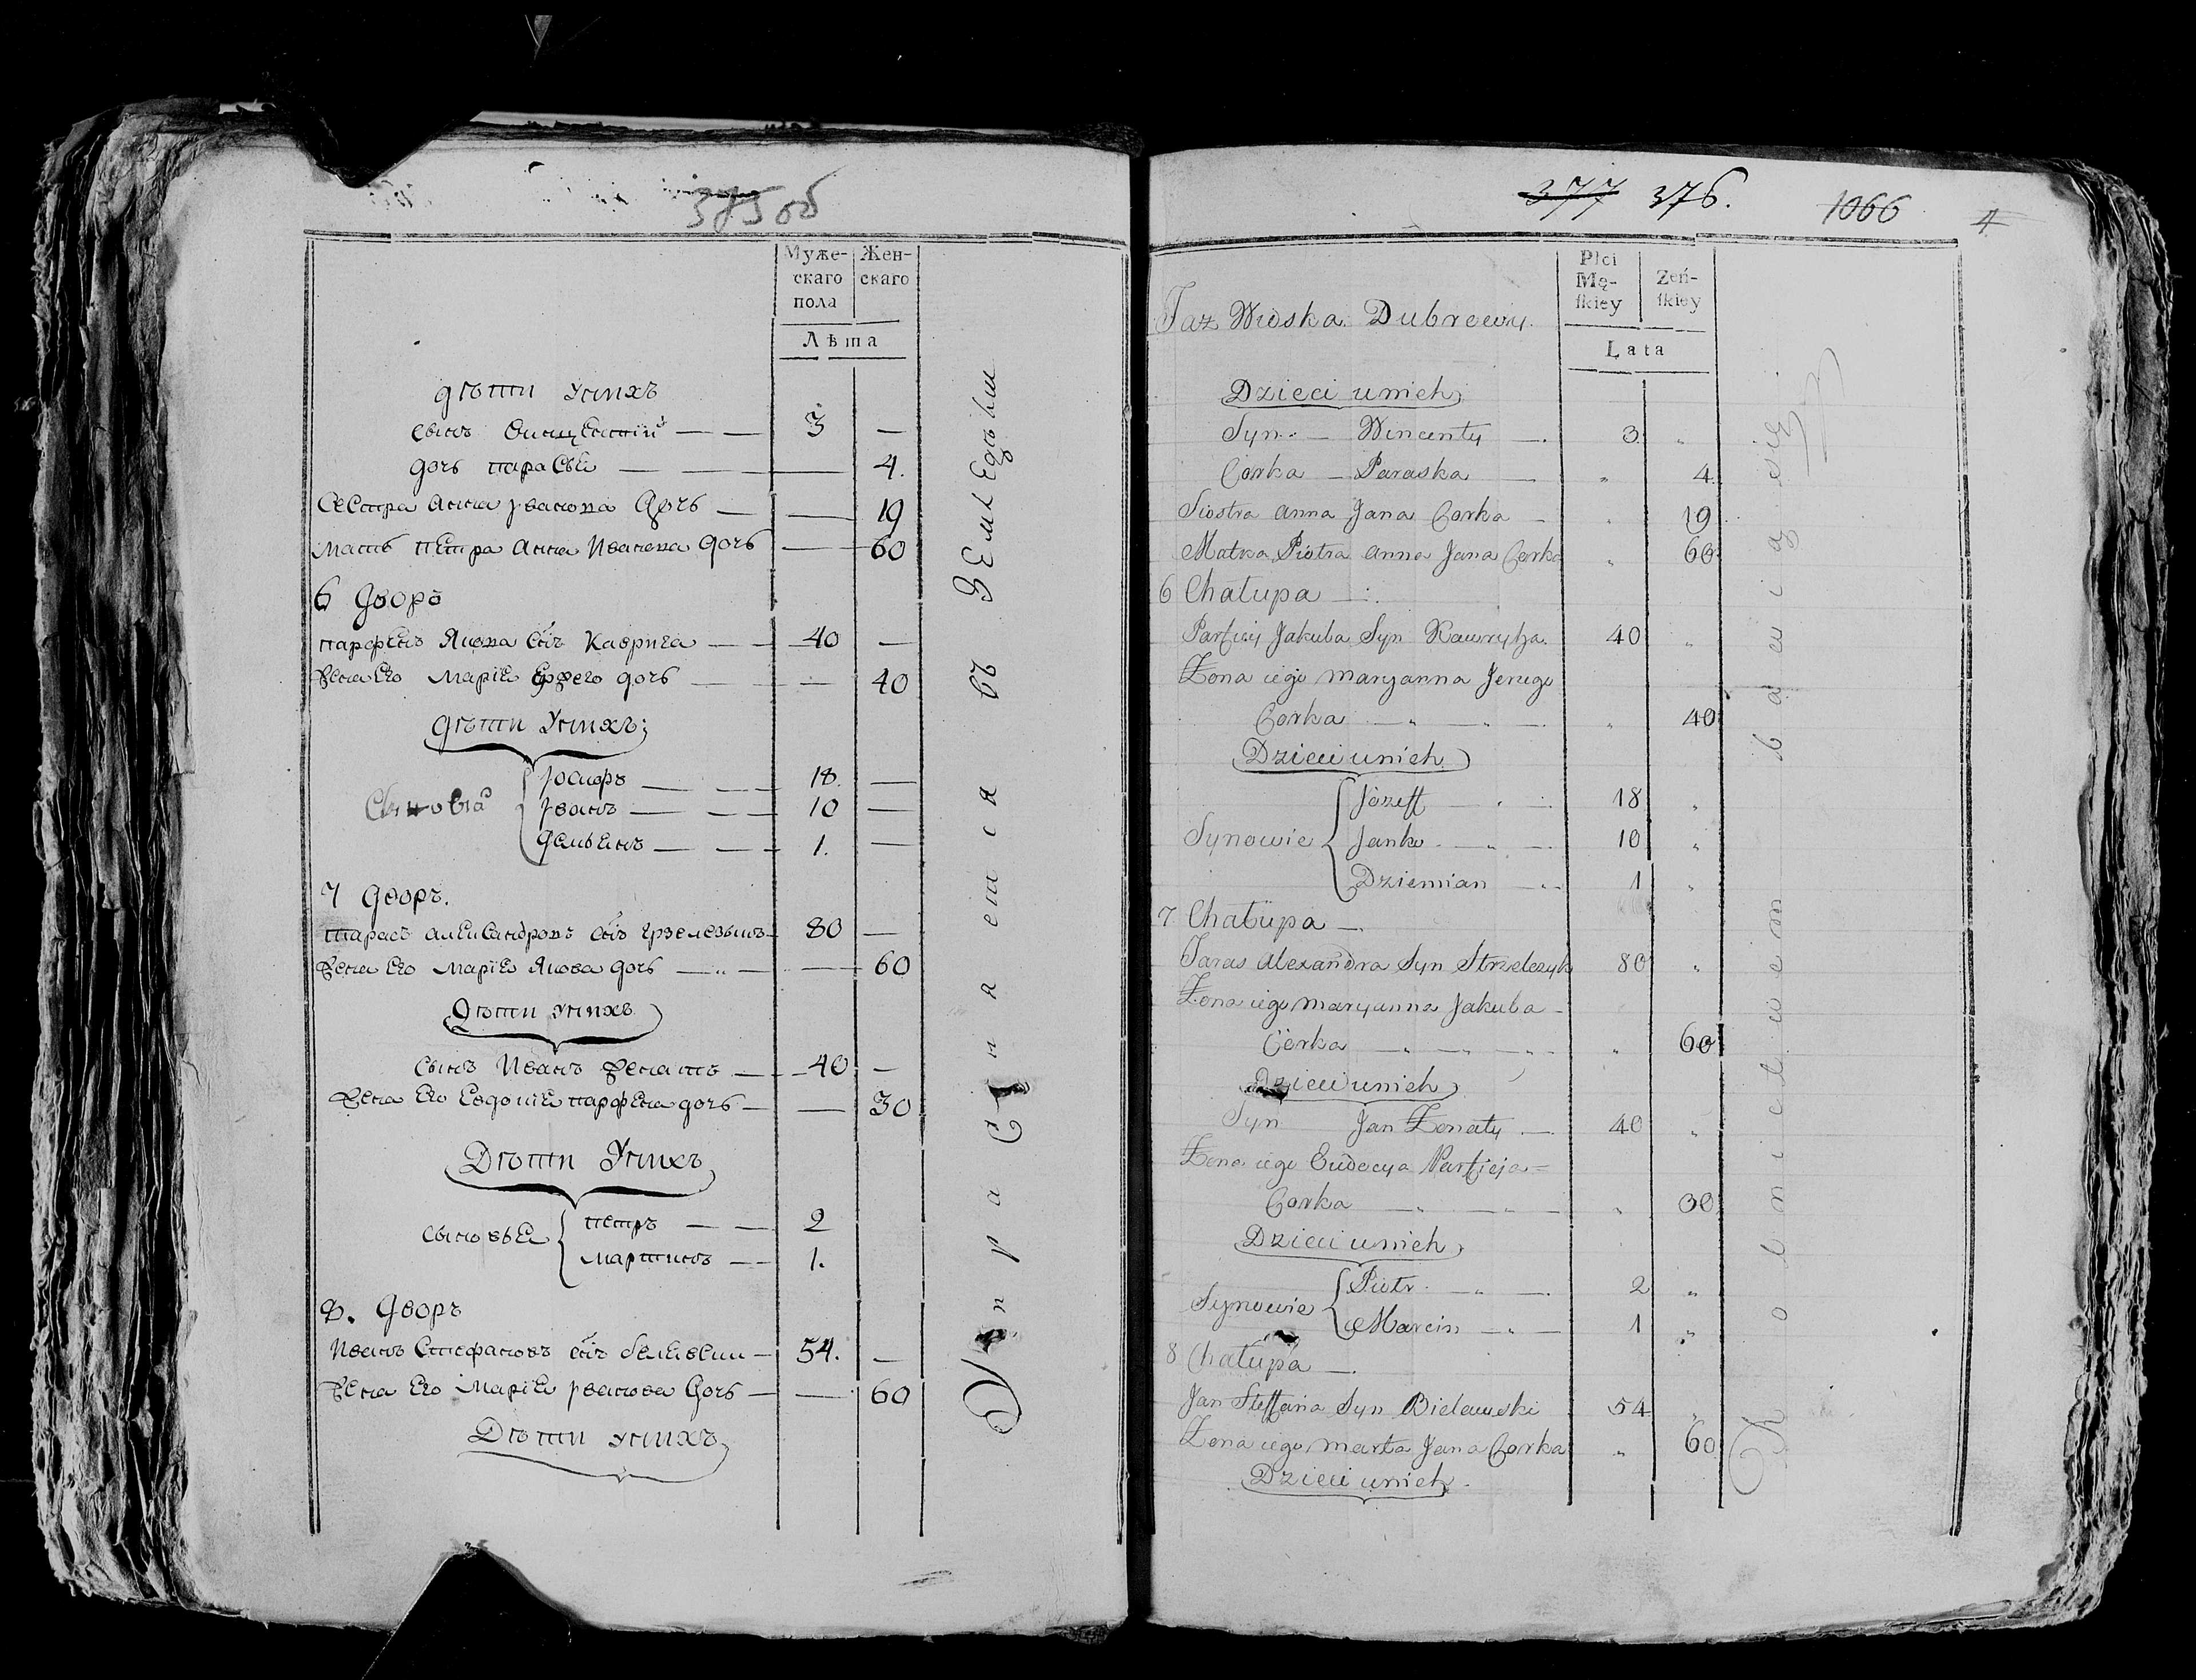 375 об
Муже-
скаго
пола
Жен-
скаго
Лѣта
дѣти уных
сынъ Винцентій 3 —
дочь Параска — 4.
Сестра Анна Іванова дочь — 19
мать Петра Анна Иванова дочь — 60
6 Дворъ
Парфенъ Якова сынъ Каврига 40 —
Жена Его Марія дочь — 40
дѣти уныхъ
Сынова
Іосифъ 18. —
Іванъ 10 —
Демьянъ 1. —
7 Дворъ.
Тарасъ Александровъ сынъ 80 —
Жена Его Марія Якова дочь — 60
дѣти уныхъ
сынъ Иванъ женатъ 40 —
Жена Его Евдокія Парфена дочь — 30
Дѣти уныхъ
сыновья
Петръ 2
Мартинъ 1.
8. Дворъ
Иванъ Стефановъ сынъ 54. —
Жена Его Марія Іванова дочь — 60
Дѣти уныхъ
въ земледѣли
377 376.
1066
4
Płci
Mę-
skiey
Żeń-
skiey
Taż Wioska Dubrowy.
Lata
Dzieci unich
Syn — Wincenty — 3 "
Corka — Paraska — " 4
Siostra Anna Jana Corka — " 19
Matka Piotra Anna Jana Corka " 60
6 Chałupa —
Parfiey Jakuba Syn Kawryha 40 "
Żona iego Maryanna
Corka — " — " 40
Dzieci unich
Synowie
Jozeff — 18 "
Janko — " — 10 "
Dziemian — 1 "
7 Chałupa —.
Taras Alexandra Syn Strzelczyk 80 "
Żona iego Maryanna Jakuba —
Corka — " — " — " 60
Dzieci unich
Syn Jan Żonaty — 40 "
Żona iego Eudocya Parfieja =
Corka — " — " 30
Dzieci unich
Synowie
Piotr — " — 2 "
Marcin — " — 1 "
8 Chałupa —
Jan Steffana Syn Bielawski 54 "
Żona iego Marta Jana Corka " 60
Dzieci unich
Rolnictwem bawią się